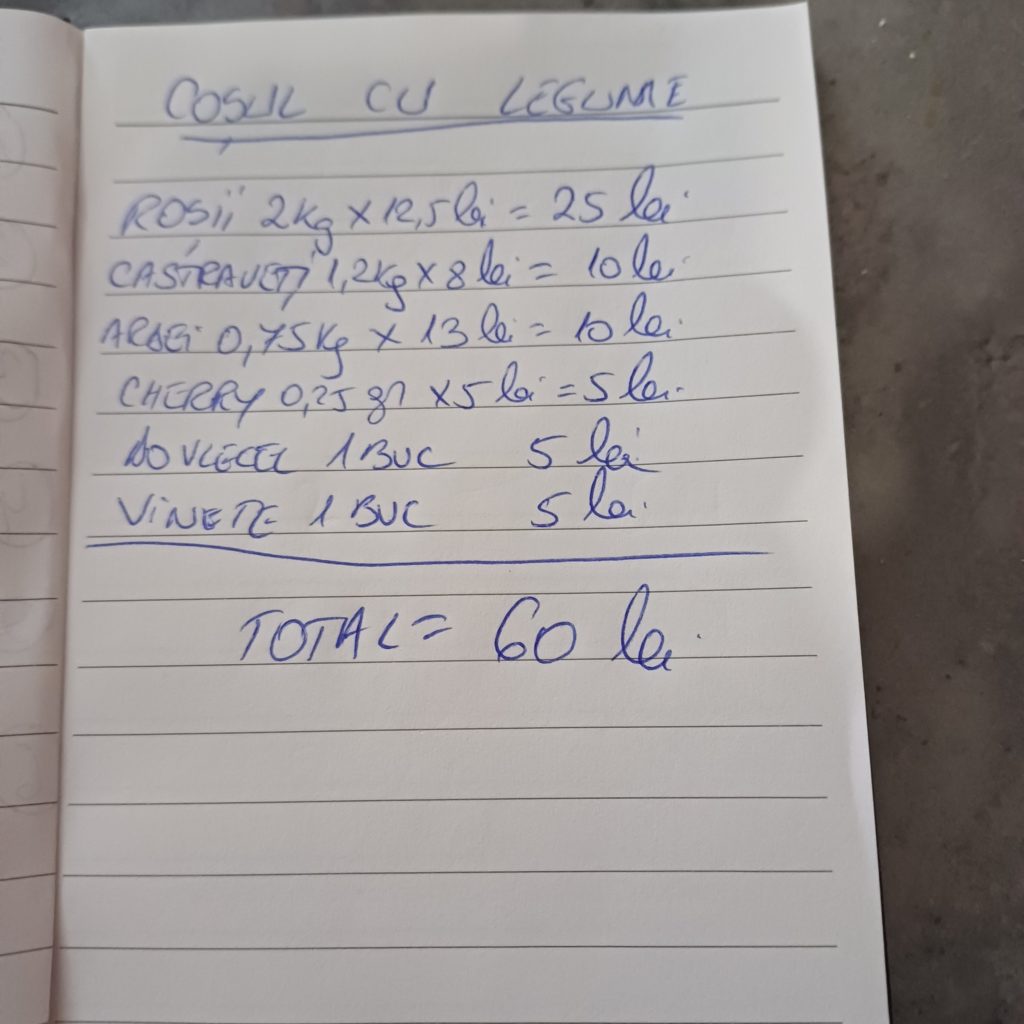 COSUL CU LEGUME
ROSII 2kg x 12,5 lei = 25 lei
CASTRAVEȚI 1,2kg x 8 lei = 10 lei
ARDEI 0,75kg x 13 lei = 10 lei
CHERRY 0,25 gr x 5 lei = 5 lei
DOVLECEL 1 BUC 5 lei
VINETE 1 BUC 5 lei
TOTAL = 60 lei